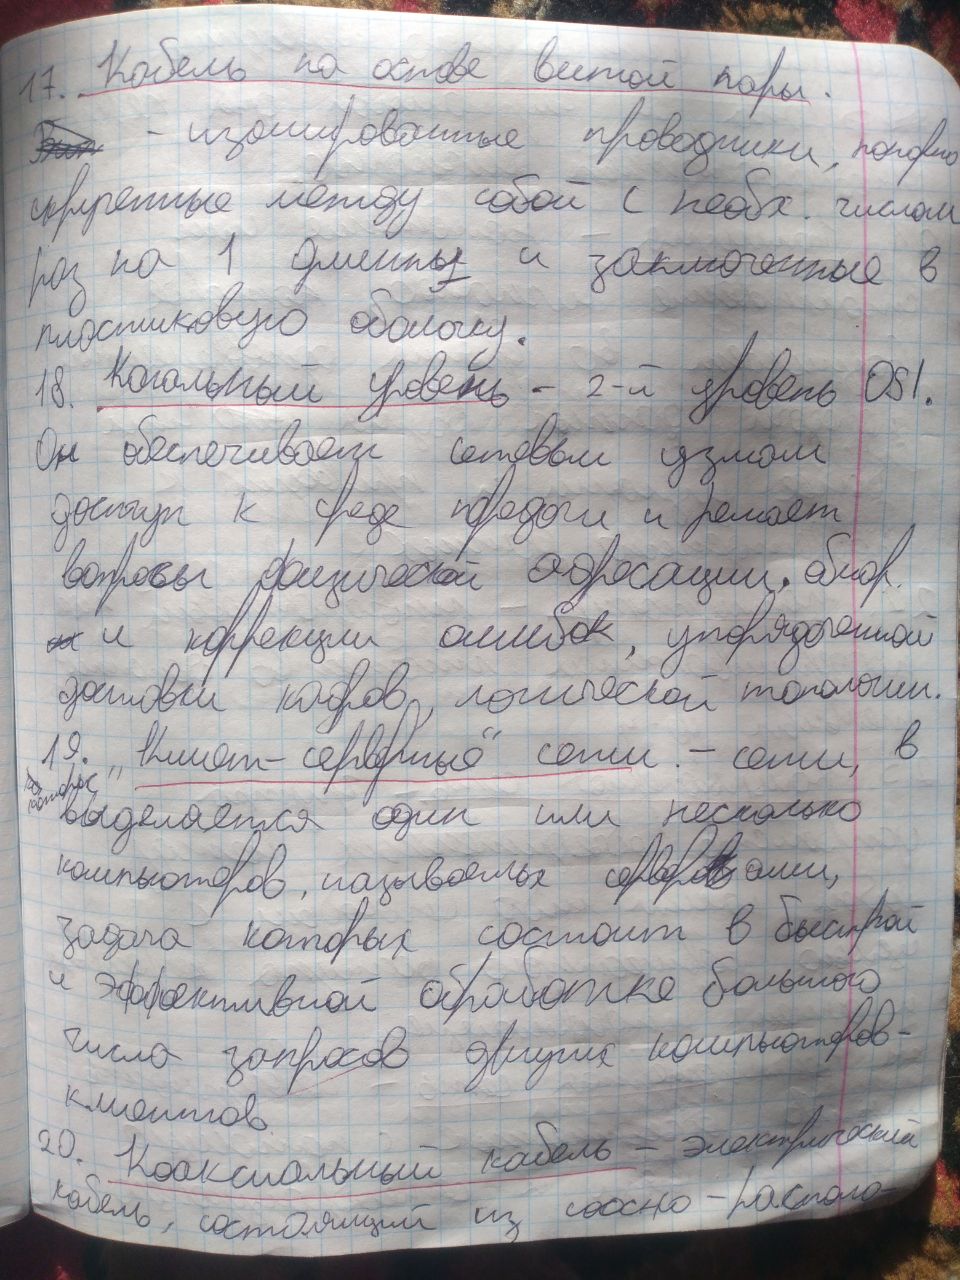 17. Кабель на основе витой пары.
- изолированные проводники, попарно
скрученные между собой с необх. числом
раз на 1 длины и заключенные в
пластиковую оболочку.
18. Канальный уровень - 2-й уровень OSI.
Он обеспечивает сетевым узлам
доступ к среде передачи и решает
вопросы физической адресации, обнар.
и коррекции ошибок, упорядоченной
доставки кадров, логической топологии.
19. "Клиент-серверные" сети. - сети, в
которых
выделяется один или несколько
компьютеров, называемых серверами,
задача которых состоит в быстрой
и эффективной обработке большого
числа запросов других компьютеров-
клиентов.
20. Коаксиальный кабель - электрический
кабель, состоящий из соосно-располо-